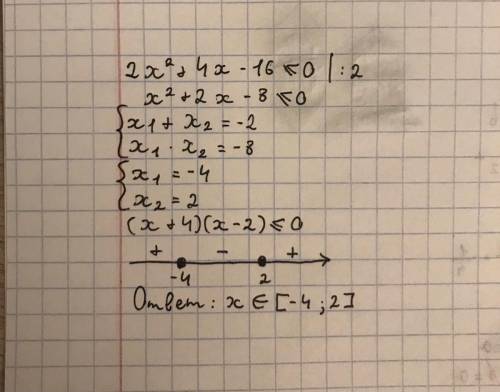 2x² + 4x - 16 ⩽ 0 | : 2
x² + 2x - 8 ⩽ 0
{ x₁ + x₂ = -2
x₁ · x₂ = -8
{ x₁ = -4
x₂ = 2
(x + 4)(x - 2) ⩽ 0
+ - +
-4 2
Ответ: x ∈ [-4 ; 2]